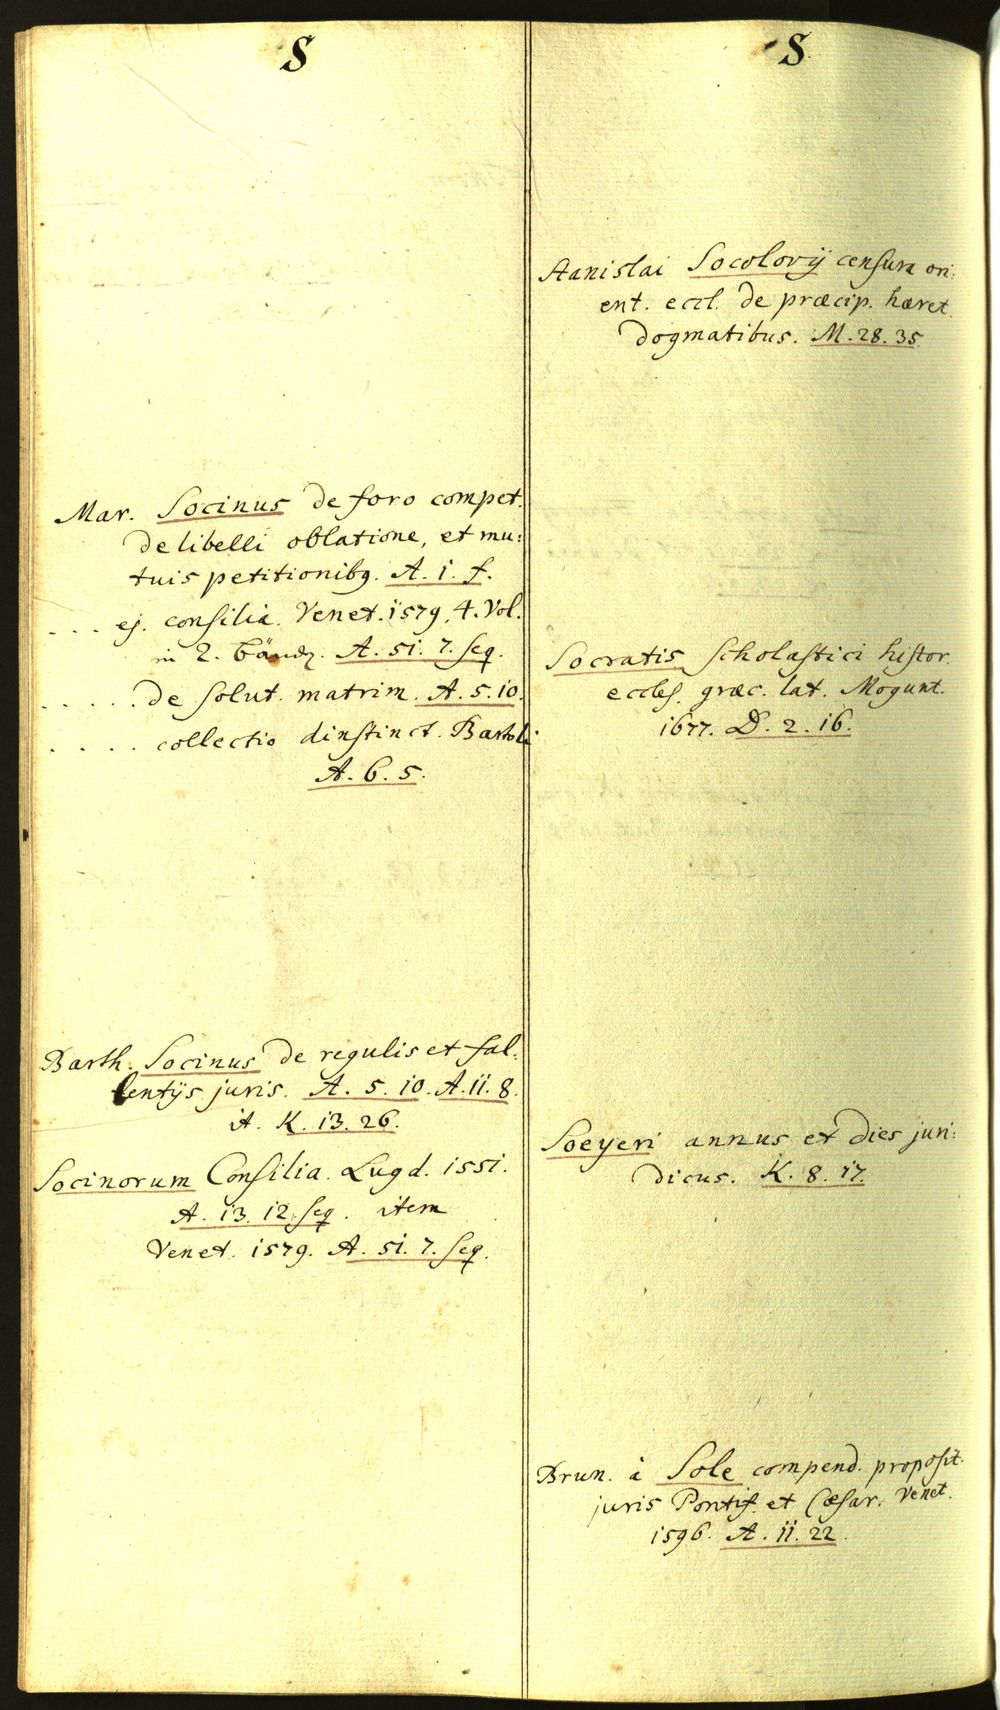 S
Mar. Socinus de foro compet.
de libelli oblatione, et mu:
tuis petitionibq. A. 1. f.
. . . ej. consilia. Venet. 1579. 4. Vol.
in 2. A. 51. 7. seq.
. . . . . de solut. matrim. A. 5. 10.
. . . . collectio dinstinct. Bartoli
A. 6. 5.
Barth. Socinus de regulis et fal:
lentijs juris. A. 5. 10. A. 11. 8.
it. K. 13. 26.
Socinorum Consilia. Lugd. 1551.
A. 13. 12. seq. item
Venet. 1579. A. 51. 7. seq.
S.
Stanislai Socolovij censura ori:
ent. eccl. de præcip. hæret.
dogmatibus. M. 28. 35.
Socratis Scholastici histor.
eccles. græc. lat. Mogunt.
1677. D. 2. 16.
Soeyeri annus et dies juri:
dicus. K. 8. 17.
Brun. à Sole compend. proposit.
juris Pontif. et Cæsar. Venet.
1596. A. 11. 22.